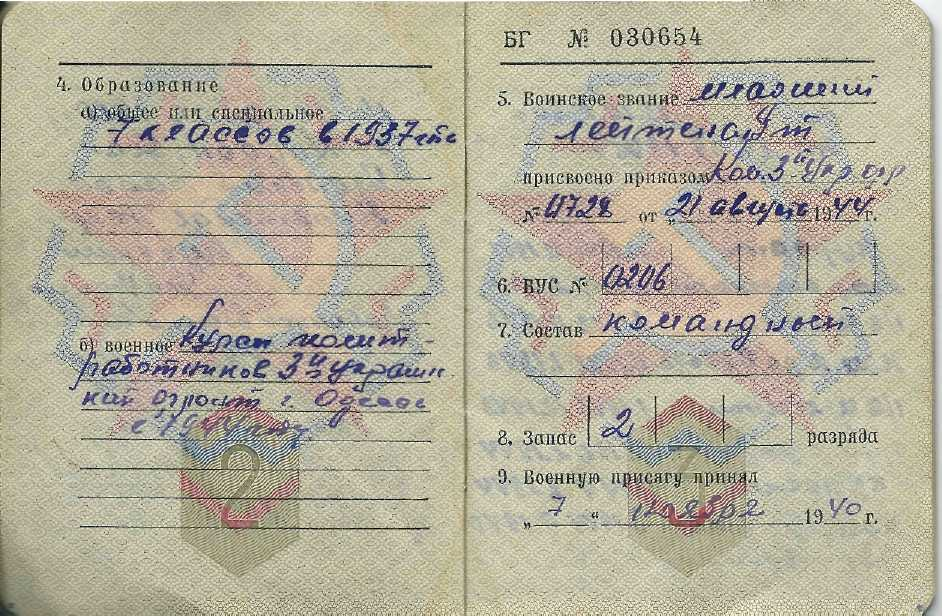 4. Образование
а) общее или специальное
7 классов в 1937
б) военное Курсы полит-
работников 3й Украин
ский фронт г. Одесса
в 1944 году.
2
БГ № 030654
5. Воинское звание младший
лейтенант
присвоено приказом 3й Укр. фр
№ 0728 от „21 августа 1944 г.
6. ВУС № 0206
7. Состав командный
8. Запас 2 разряда
9. Военную присягу принял
„ 7 “ ноября 1940 г.
3